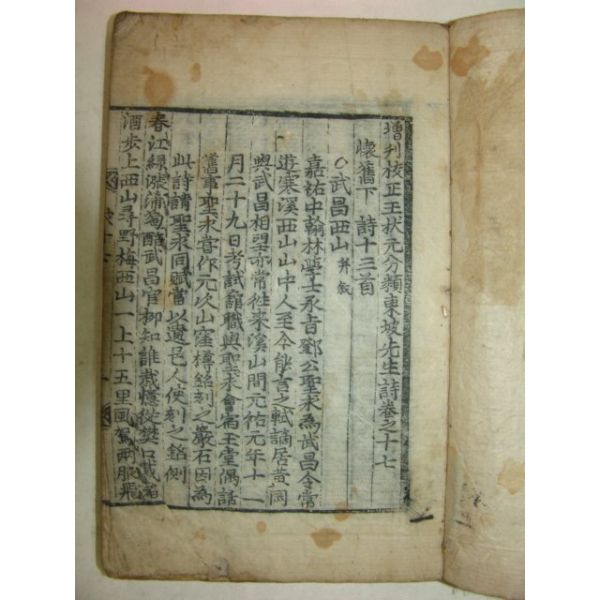 增刊校正王狀元分類東坡先生詩卷之十七
懷舊下 詩十三首
○武昌西山 幷叙
嘉祐中翰林學士承旨鄧公聖求為武昌令常
遊寒溪西山山中人至今能言之軾謫居黃岡
與武昌相望亦常往來溪山間元祐元年十一
月二十九日考試館職與聖求會宿玉堂偶話
舊事聖求嘗作元次山窪樽銘刻之巖石因為
此詩請聖求同賦當以遺邑人使刻之銘側
春江綠漲蒲萄醅武昌官柳知誰栽憶從樊口載
酒步上西山尋野梅西山一上十五里風駕兩腋飛